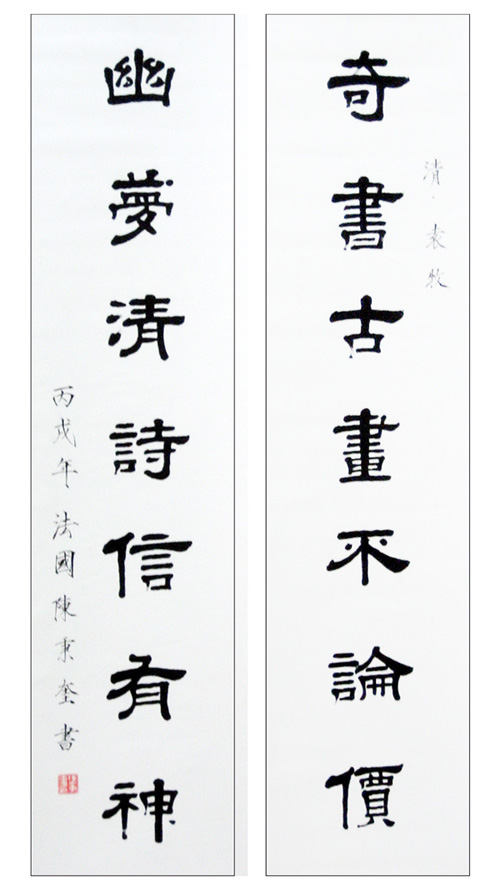 清·袁牧
奇書古畫不論價
幽夢清詩信有神
丙戌年法國陳秉奎書